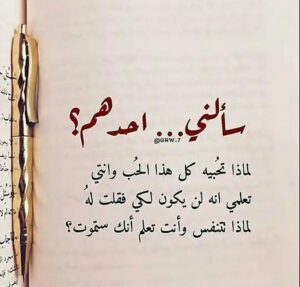 سألني... احدهم؟
@GRW.7
لماذا تحُبيه كل هذا الحُب وانتي
تعلمي انه لن يكون لكي فقلت لهُ
لماذا تتنفس وأنت تعلم أنك ستموت؟